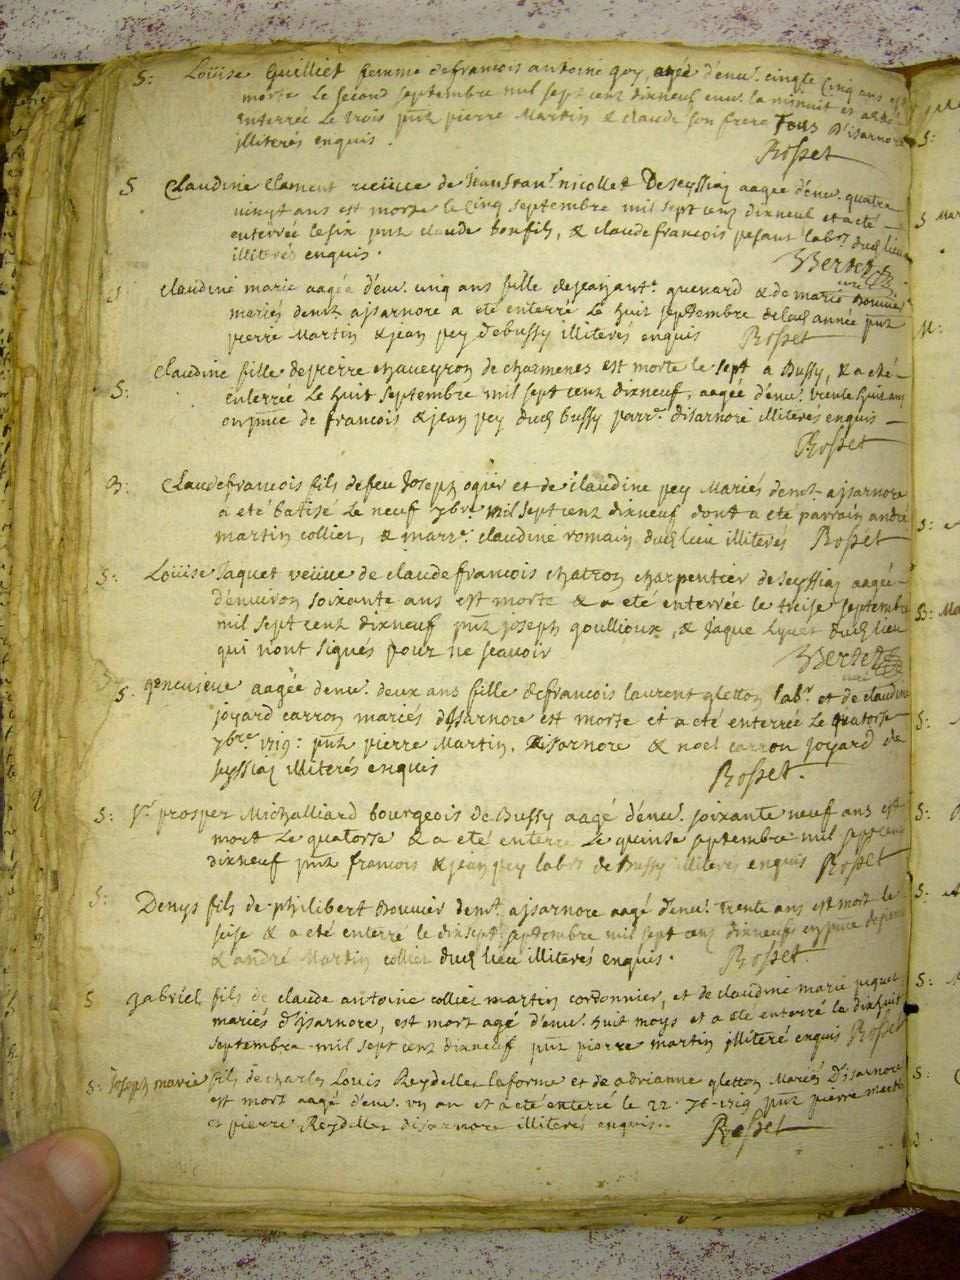 S: Loüise Guilliet femme de francois antoine goy, agée d'env.^t cinqte cinq ans est
morte Le second septembre mil sept cent dixneuf env. la minuit et a esté
enterrée Le trois pnt pierre Martin & claude son frere Tous D'isarnore
illiterés enquis. Rosset
S Claudine Clament veüive de Jean fran.^s nicollet De seyssiaz aagée d'env. quatre
vingt ans est morte le cinq septembre mil sept cent dixneuf et a eté
enterrée le six pnt claude bonfils, & claude francois pesant lab.^rs dud lieu
illiterés enquis. Vertet
S Claudine marie aagée d'env. cinq ans fille de jean ant.^e guenard & de marie bouvier
mariés dem.^t a jsarnore a eté enterrée Le huit septembre de lad année pnt
pierre Martin & jean pey de bussy illiterés enquis Rosset
S: Claudine fille de pierre chaveyron de charmenes est morte le sept a Bussy, & a eté
enterrée Le huit septembre mil sept cent dixneuf, aagée d'env. trente huit ans
en pnce de francois & jean pey dud bussy parr.^e disarnore illiterés enquis
Rosset
B: Claude francois fils de feu Joseph ogier et de claudine pey Mariés dem.^t a jsarnore
a été batisé Le neuf 7bre mil sept cent dixneuf dont a eté parrain andré
martin collier, & marr.^e claudine romain dud lieu illiterés Rosset
S: Loüise Jaquet veüve de claude francois chatron charpentier de seyssiaz aagée
d'environ soixante ans est morte & a eté enterrée le treise septembre
mil sept cent dixneuf pnt joseph goullioux, & Jaque hyver dud lieu
qui nont signés pour ne scavoir Vertet
S. genevieve aagée d'env. deux ans fille de francois laurent gletton lab.^r et de claudine
joyard carron mariés disarnore est morte et a eté enterrée Le quatorse
7bre 1719: pnt pierre Martin, disarnore & noel carron joyard de
seyssiaz illiterés enquis Rosset.
S: S.^r prosper Michalliard bourgeois de Bussy aagé d'env. soixante neuf ans est
mort Le quatorse & a eté enterré Le quinse septembre mil sept cent
dixneuf pnt francois & jean pey lab.^rs de bussy illiterés enquis Rosset
S: Denys fils de philibert bouvier dem.^t a jsarnore aagé d'env. trente ans est mort le
seise & a eté enterré le dixsept septembre mil sept cent dixneuf en pnce de pierre
& andré Martin collier dud lieu illiterés enquis. Rosset.
S gabriel fils de claude antoine collier martin cordonnier, et de claudine marie piquet
mariés d'jsarnore, est mort agé d'env. huit moys et a ete enterré le dixhuit
septembre mil sept cent dixneuf pnt pierre martin illiteré enquis Rosset
S: Joseph marie fils de charles Louis Reydellet laforme et de adrianne gletton Mariés D'isarnore
est mort aagé d'env. un an et a eté enterré le 22 7bre 1719 pnt pierre martin
et pierre Reydellet disarnore illiterés enquis. Rosset